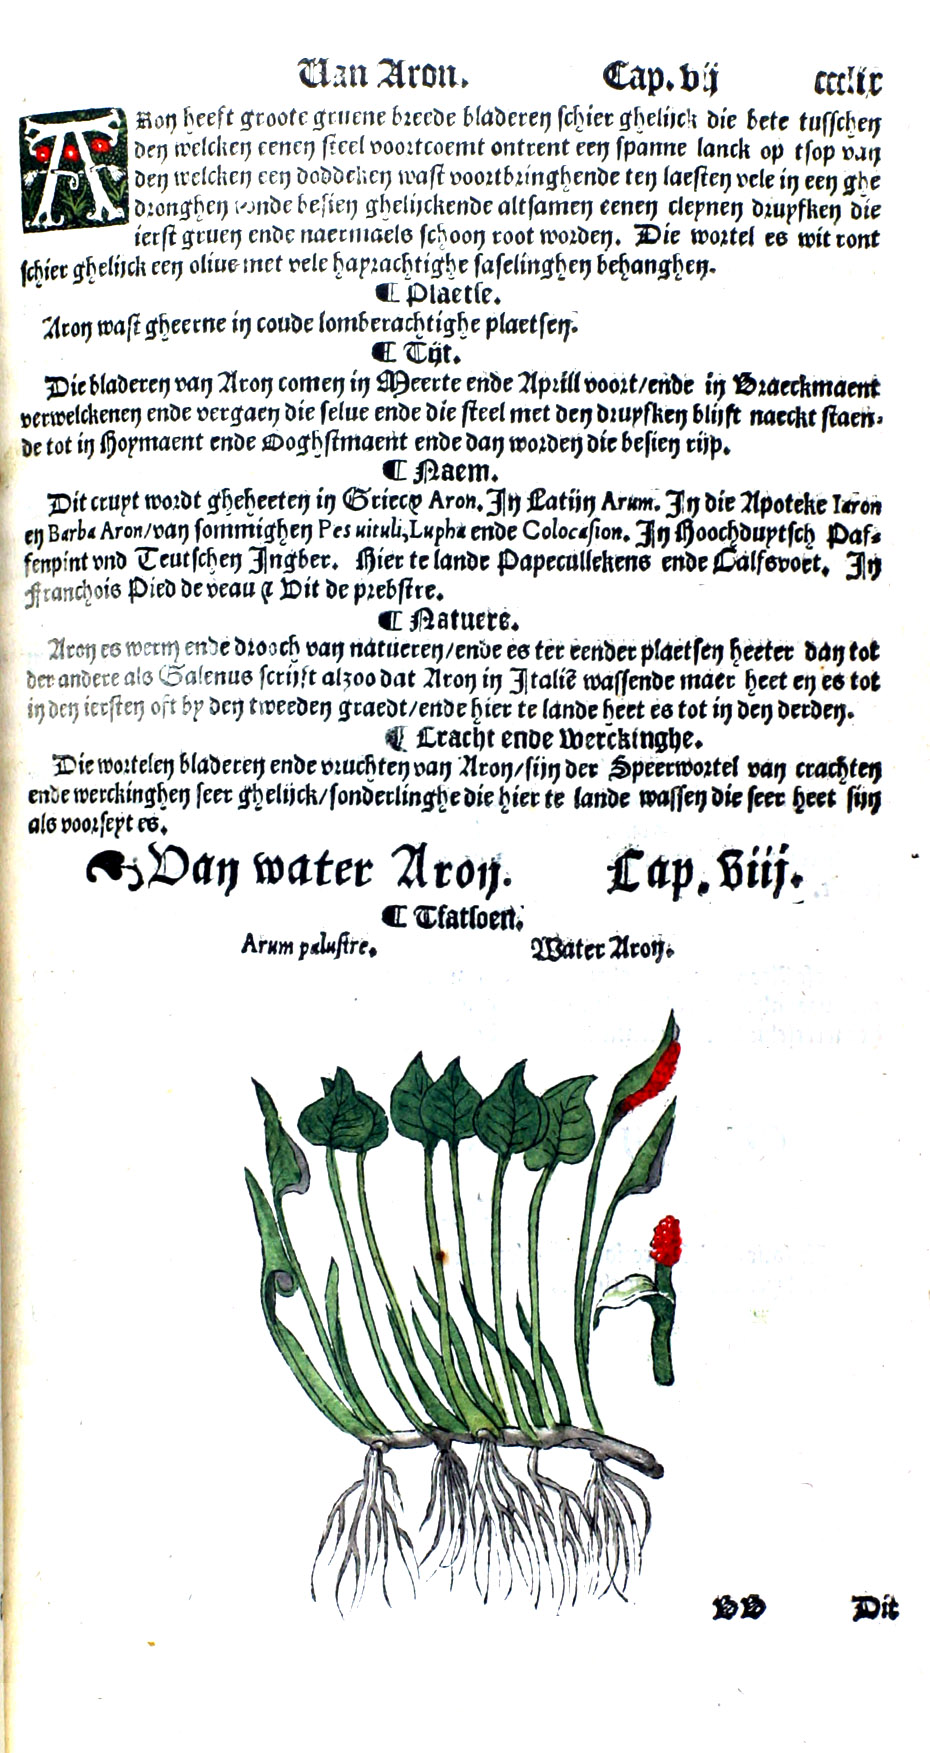 Van Aron. Cap. vij ccclix
ARon heeft groote gruene breede bladeren schier ghelijck die bete tusschen
den welcken eenen steel voortcoemt ontrent een spanne lanck op tsop van
den welcken een doddeken wast voortbringhende ten laesten vele in een ghe
dronghen ronde besien ghelijckende altsamen eenen cleynen druyfken die
ierst gruen ende naermaels schoon root worden. Die wortel es wit ront
schier ghelijck een olive met vele hayrachtighe faselinghen behanghen.
¶ Plaetse.
Aron wast gheerne in coude lomberachtighe plaetsen.
¶ Tijt.
Die bladeren van Aron comen in Meerte ende Aprill voort/ende in Braeckmaent
verwelckenen ende vergaen die selue ende die steel met den druyfken blijft naeckt staen-
de tot in Hoymaent ende Ooghstmaent ende dan worden die besien rijp.
¶ Naem.
Dit cruyt wordt gheheeten in Griecx Aron. In Latijn Arum. In die Apoteke Iaron
en Barba Aron/van sommighen Pes uituli, Lupha ende Colocasion. In Hoochduytsch Paf-
fenpint vnd Teutschen Ingber. Hier te lande Papecullekens ende Calfsvoet. In
Franchois Pied de veau & Vit de prebstre.
¶ Natuere.
Aron es werm ende drooch van natueren/ende es ter eender plaetsen heeter dan tot
der andere als Galenus scrijft alzoo dat Aron in Italiē wassende maer heet en es tot
in den iersten oft by den tweeden graedt/ende hier te lande heet es tot in den derden.
¶ Cracht ende Werckinghe.
Die wortelen bladeren ende vruchten van Aron/sijn der Speerwortel van crachten
ende werckinghen seer ghelijck/sonderlinghe die hier te lande wassen die seer heet sijn
als voorseyt es.
Van water Aron. Cap. viij.
¶ Tfatsoen.
Arum palustre. Water Aron.
BB Dit